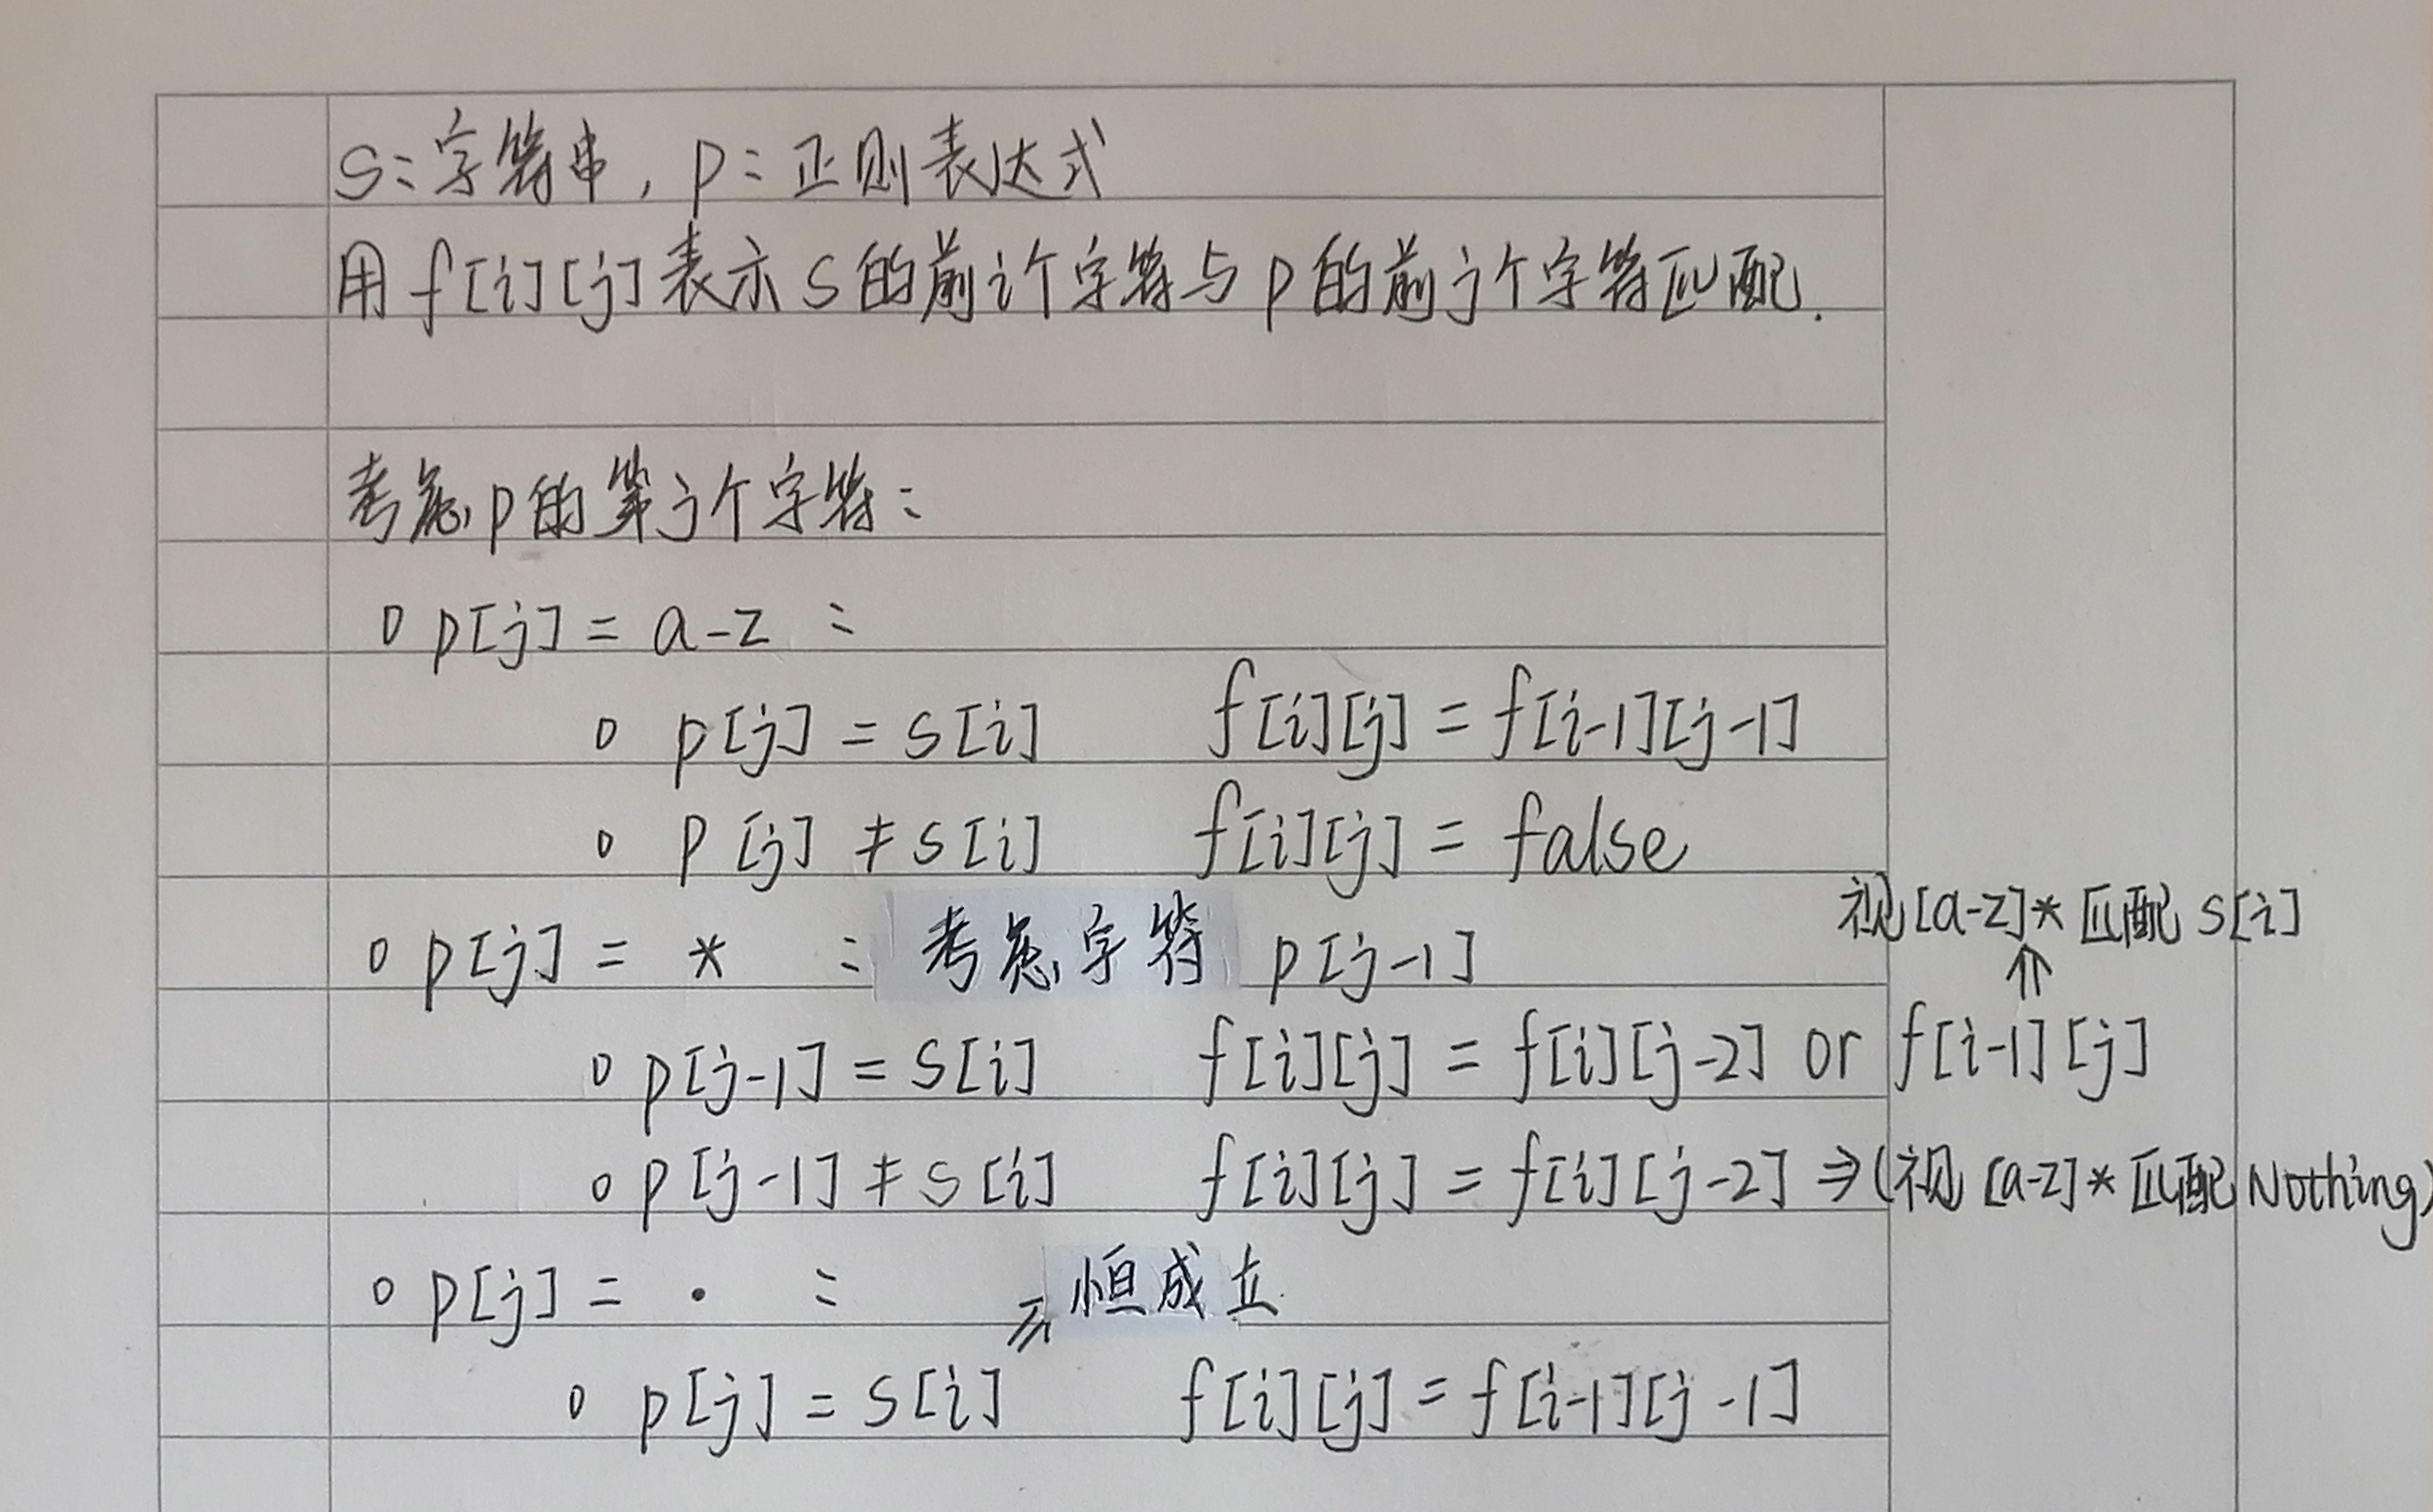 s:字符串, p:正则表达式
用 f[i][j] 表示 s 的前i个字符与 p 的前j个字符匹配.
考虑 p 的第j个字符:
o p[j] = a-z :
o p[j] = s[i] f[i][j] = f[i-1][j-1]
o p[j] ≠ s[i] f[i][j] = false
视[a-z]* 匹配 s[i]
o p[j] = * : 考虑字符 p[j-1]
⇑
o p[j-1] = s[i] f[i][j] = f[i][j-2] or f[i-1][j]
o p[j-1] ≠ s[i] f[i][j] = f[i][j-2] ⇒ (视 [a-z]* 匹配 Nothing)
o p[j] = . : 恒成立
o p[j] = s[i] f[i][j] = f[i-1][j-1]